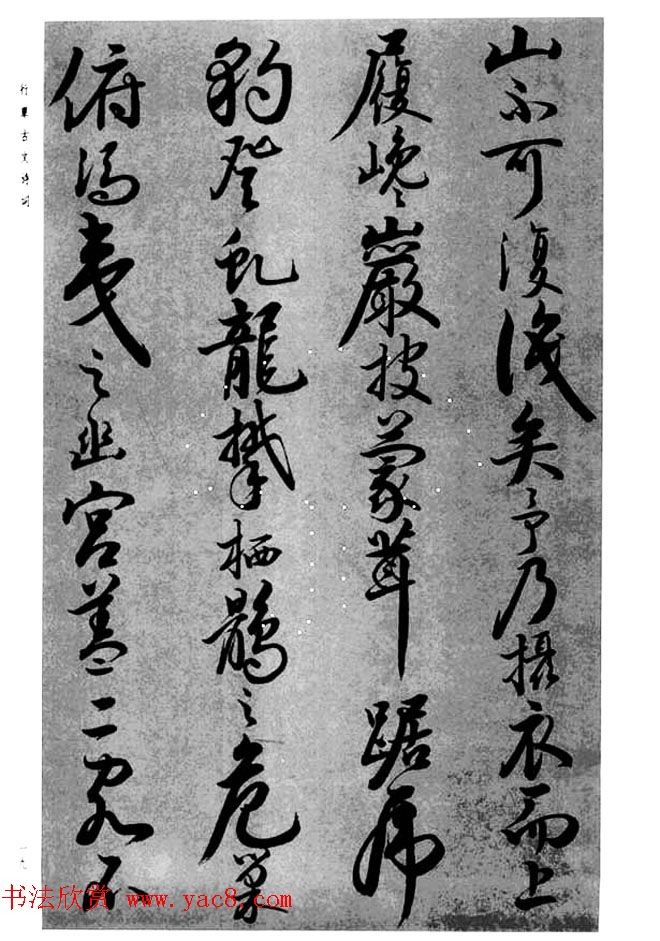 山不可復識矣予乃攝衣而上
履巉巖披蒙茸踞虎
豹登虬龍攀栖鶻之危巢
俯馮夷之幽宮蓋二客不
行草古文诗词
一九
书法欣赏 www.yac8.com